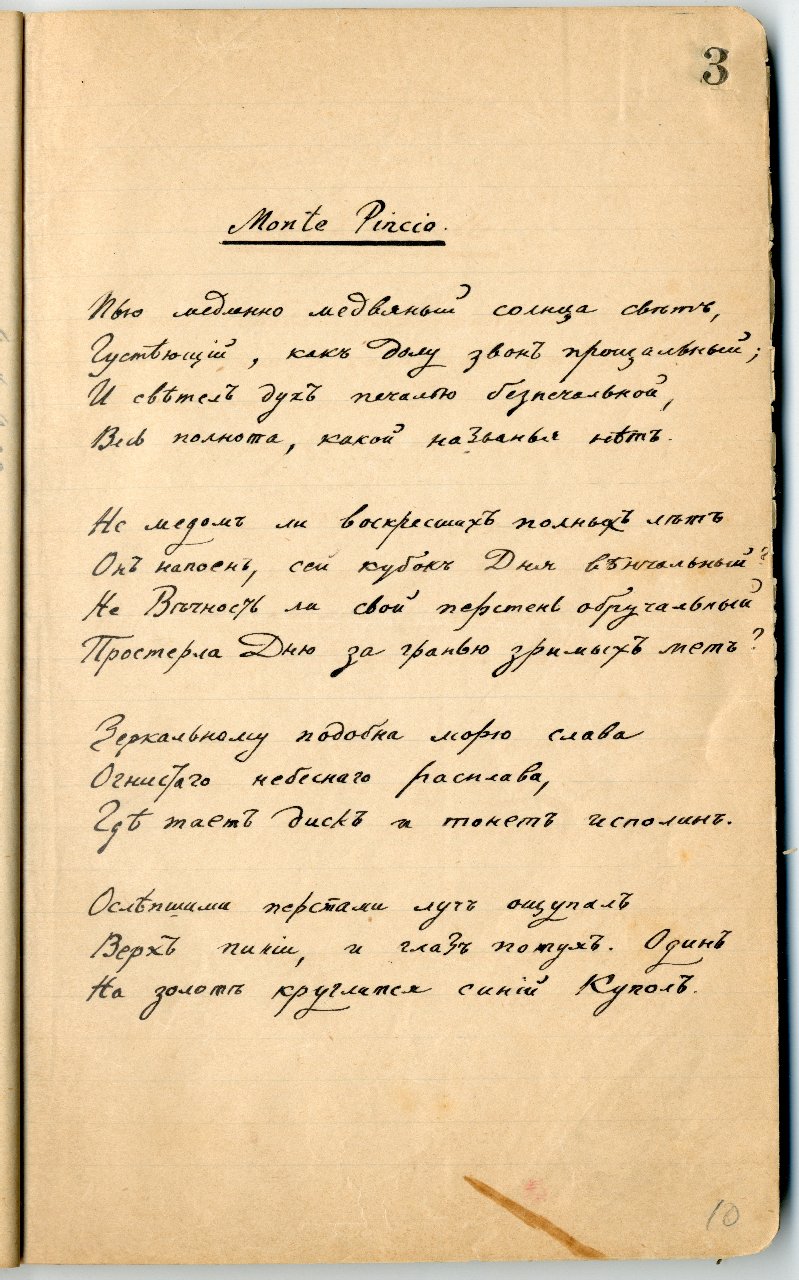 3
Monte Pincio.
Пью медленно медвяный солнца свѣтъ,
Густѣющій, какъ долу звонъ прощальный;
И свѣтелъ духъ печалью безпечальной,
Весь полнота, какой названья нѣтъ.
Не медомъ ли воскресшихъ полныхъ лѣтъ
Онъ напоенъ, сей кубокъ Дня вѣнчальный?
Не Вѣчность ли свой перстень обручальный
Простерла Дню за гранью зримыхъ метъ?
Зеркальному подобна морю слава
Огнистаго небеснаго расплава,
Гдѣ таетъ дискъ и тонетъ исполинъ.
Ослѣпшими перстами лучъ ощупалъ
Верхъ пиніи, и глазъ потухъ. Одинъ
На золотѣ круглится синій Куполъ.
10